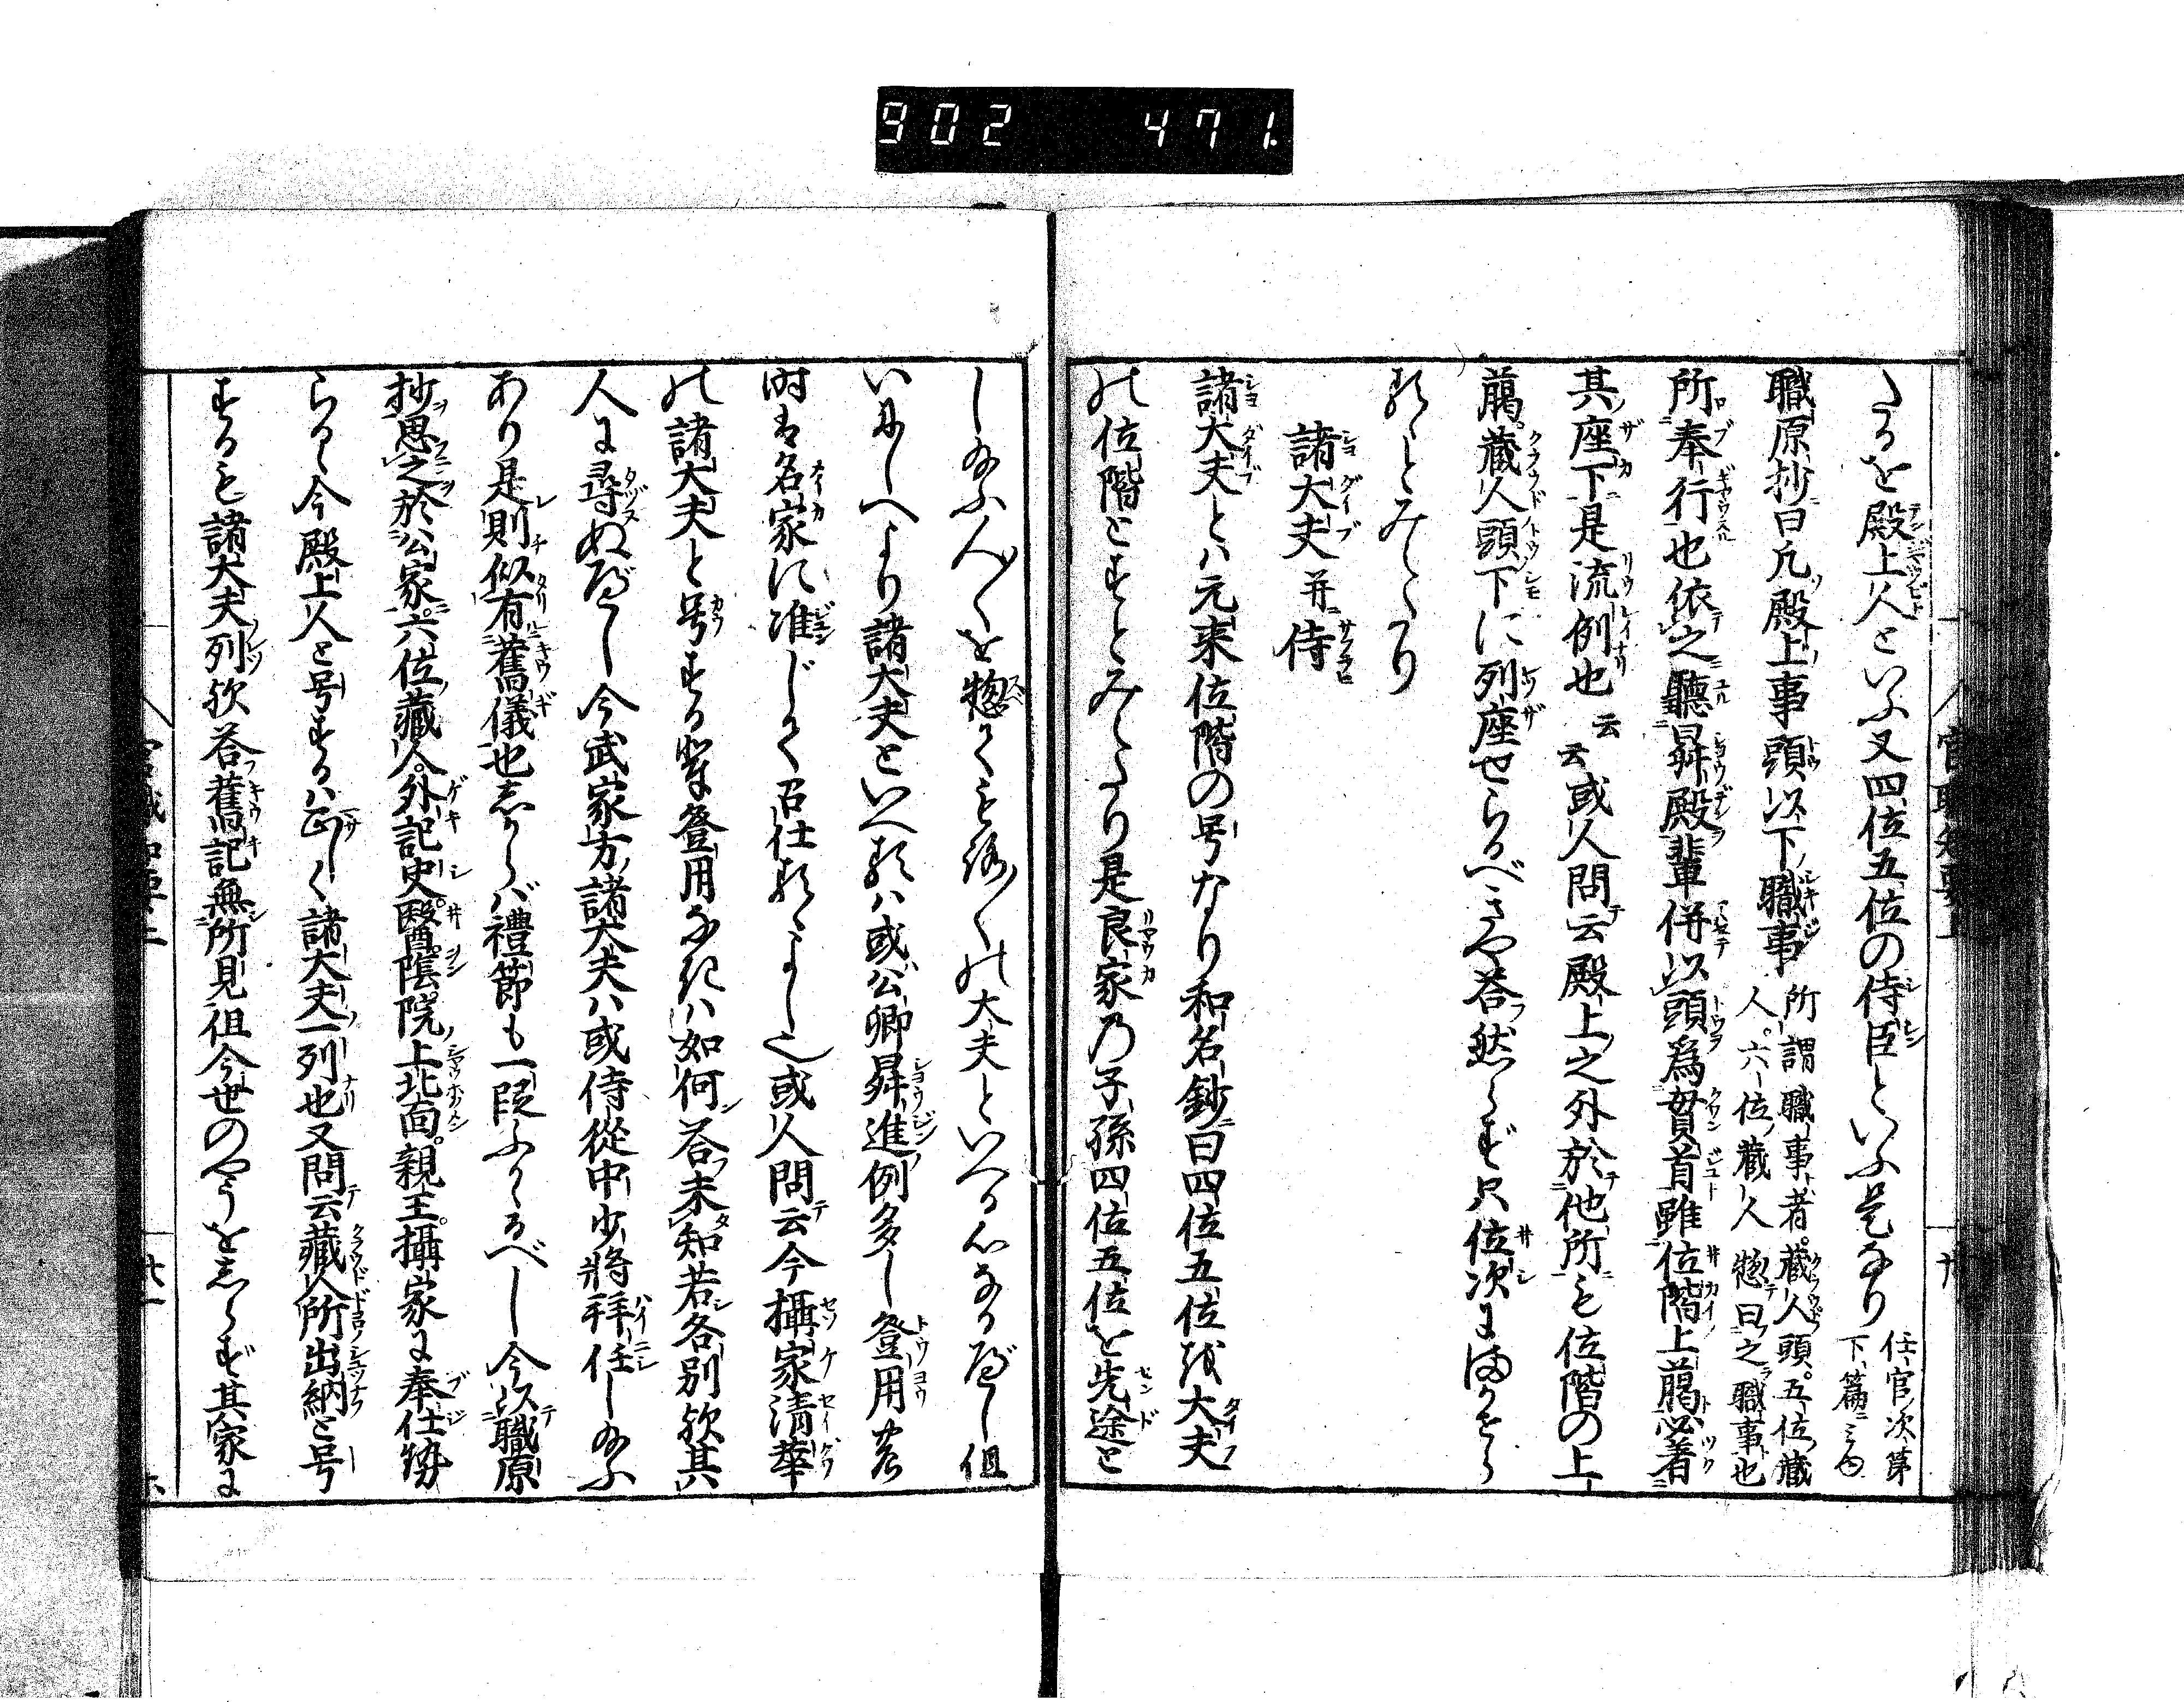 902 471.
たるを殿上人といふ又四位五位の侍臣といふ是なり 任官次第
下篇ニミゆ
職原抄曰凡殿上事頭以下職事 所謂職事者。蔵人頭。五位蔵
人。六位蔵人 惣テ曰之職事也
所奉行也依之聽昇殿輩併以頭爲貫首雖位階上﨟必着
其座下是流例也云云或人問云殿上之外於他所も位階の上
﨟蔵人頭下に列座せらるべきや答然らず只位次にまかせら
るゝとみえたり
諸大夫 并侍
諸大夫とハ元来位階の号なり和名鈔曰四位五位を大夫
の位階とすとみえたり是良家乃子孫四位五位を先途と
し給ふ人〱を惣てもろ〱の大夫といへる心なるべし但
いにしへより諸大夫といへるハ或公卿昇進例多し登用
時は名家に准じて召仕るゝよし也或人問云今攝家清華
の諸大夫と号する輩登用なきハ如何答未知若各別歟其
人に尋ぬべし今武家方諸大夫ハ或侍從中少將拝任し給ふ
あり是則似有舊儀也しからバ禮節も一段ふかゝるべし今以職原
抄思之於公家六位蔵人。外記史。醫陰。院上北面。親王攝家に奉仕
らるゝ今殿上人と号するハ正しく諸大夫一列也又問云蔵人所出納と号
するも諸大夫列歟答舊記無所見但今世のやうをしらず其家に